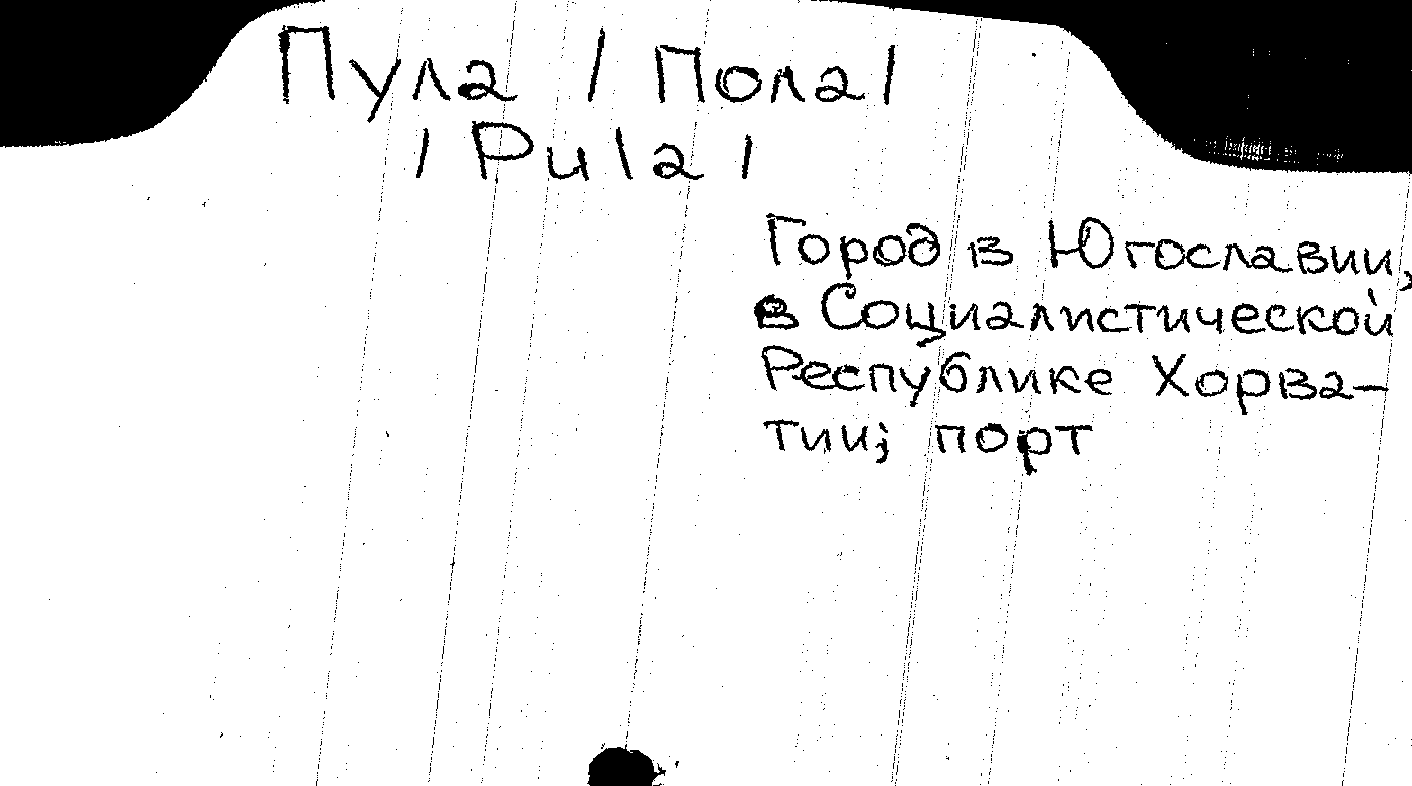 Пула / Пола /
/ Pula /
Город в Югославии,
в Социалистической
Республике Хорва-
тии; порт